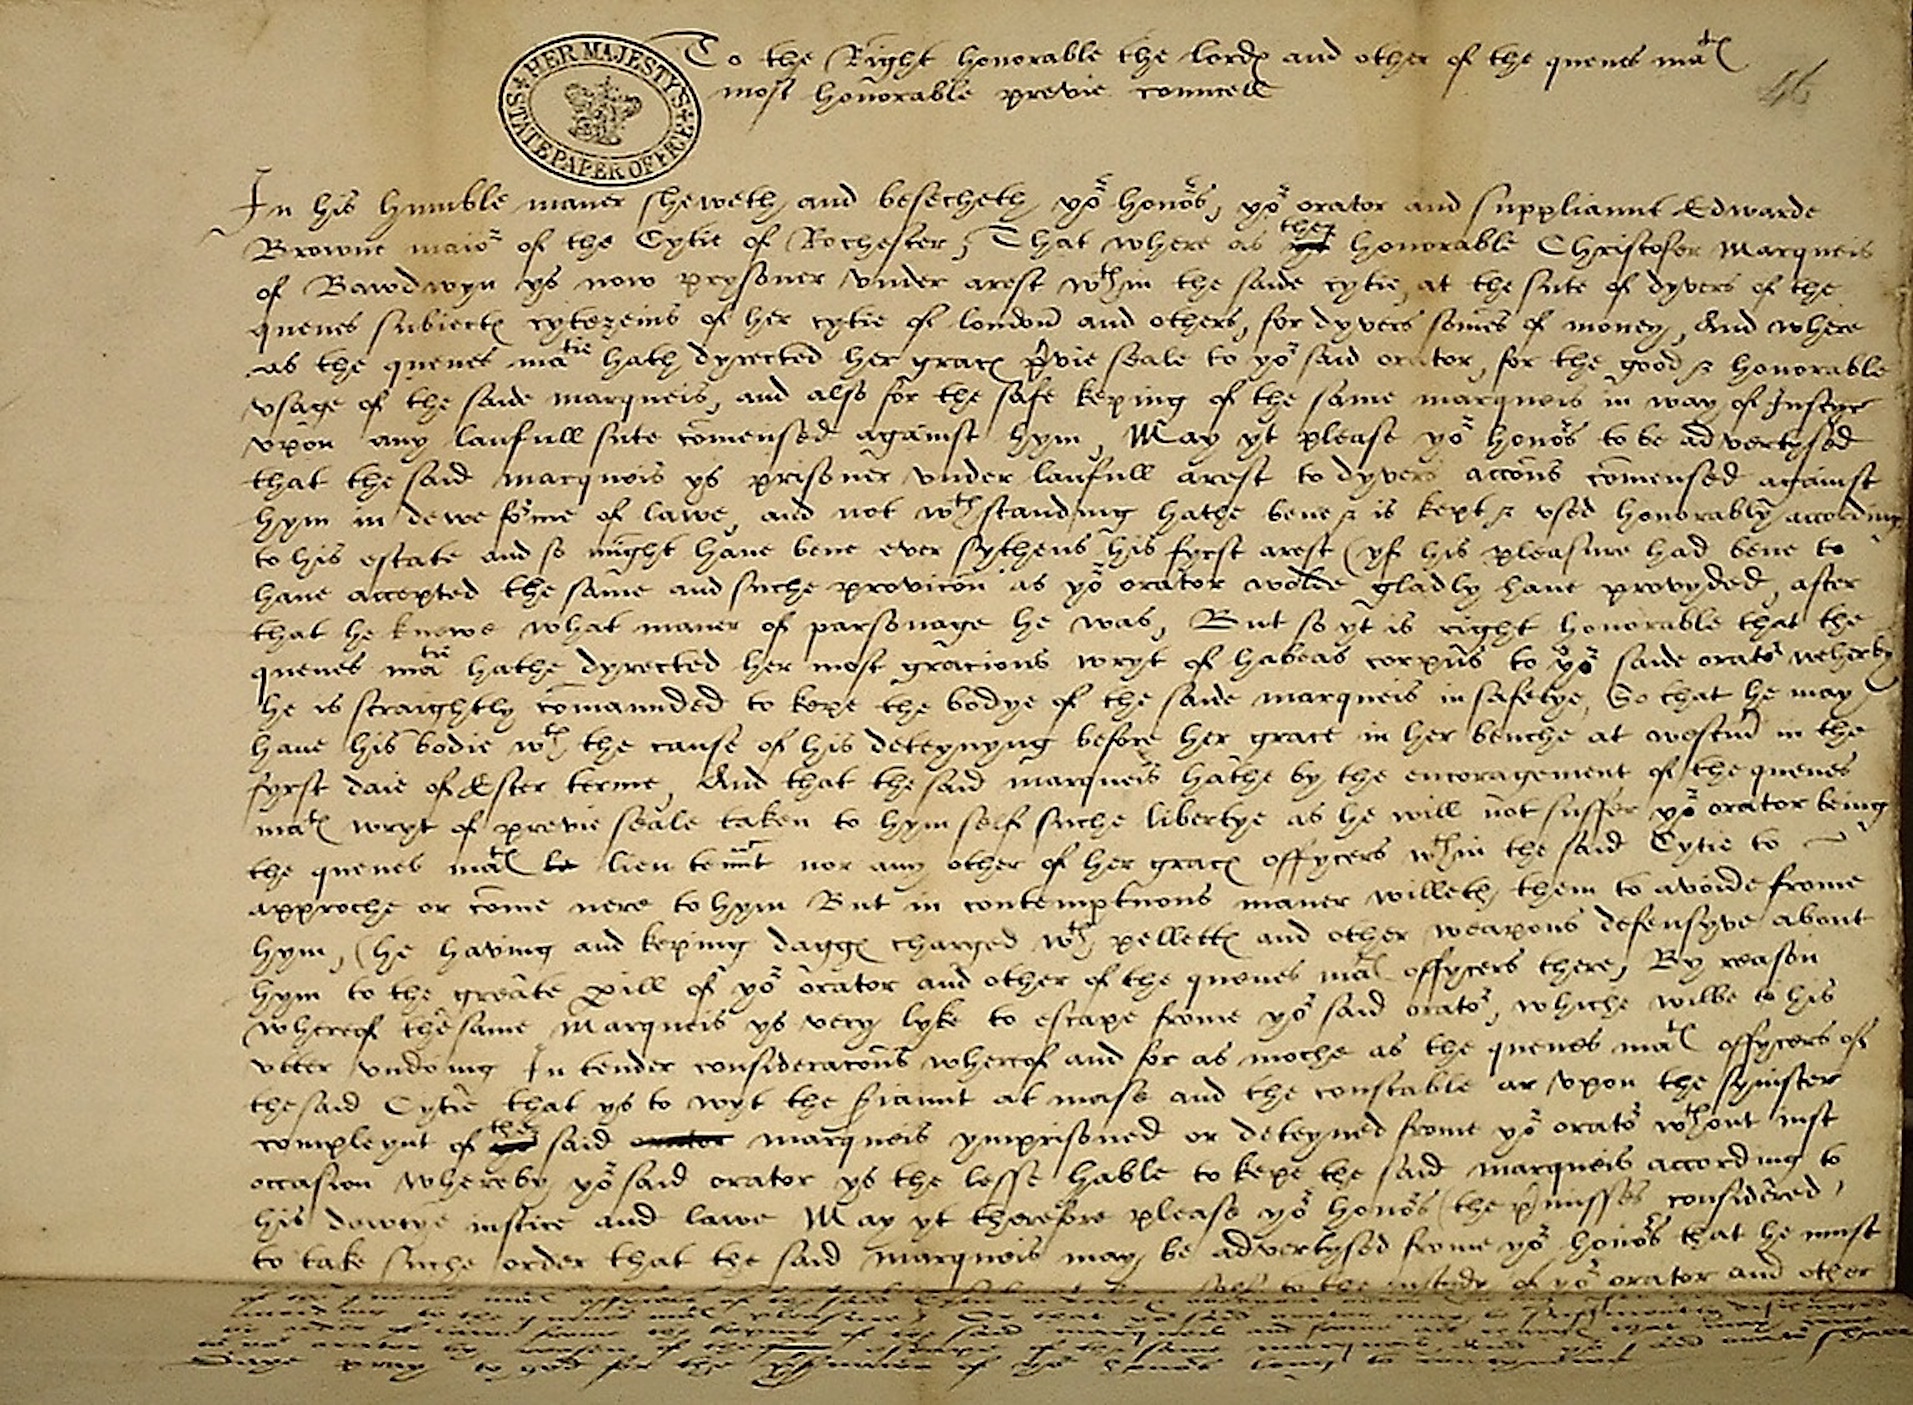 To the Right honorable the lordes and other of the quenes ma^tes
most honorable previe councell
46
HER MAJESTY'S STATE PAPER OFFICE
In his humble maner sheweth and besecheth yo^r hono^rs, yo^r orator and suppliaunt Edwarde
Browne maio^r of the Cytie of Rochester, That where as the honorable Christofer Marqueis
of Bawdwyn ys now prysoner vnder arest w^thin the saide cytie, at the sute of dyvers of the
quenes subiectes cytezeins of her cytie of london and others, for dyvers somes of money, And where
as the quenes ma^tie hath dyrected her graces pvie seale to yo^r said orator, for the good & honorable
vsage of the saide marqueis, and also for the safe keping of the same marqueis in way of Justyce
vpon any laufull sute comensed against hym, May yt please yo^r hono^rs to be advertysed
that the said marqueis ys prisoner vnder laufull arest to dyvers accons comensed against
hym in dewe forme of lawe, and not w^thstanding hathe bene & is kept & vsed honorably according
to his estate and so might have bene ever sythens his fyrst arest (yf his pleasure had bene to
have accepted the same and suche provicon as yo^r orator wolde gladly have provyded, after
that he knewe what maner of parsonage he was, But so yt is right honorable that the
quenes ma^tie hathe dyrected her most gracious wryt of habeas corpus to yo^r saide orato^r wherby
he is straightly comaunded to kepe the bodye of the saide marqueis in safetye, So that he may
have his bodie w^th the cause of his deteynyng before her grace in her benche at westm in the
fyrst daie of Ester terme, And that the said marqueis hathe by the encoragement of the quenes
ma^tes wryt of previe seale taken to hym self suche libertye as he will not suffer yo^r orator being
the quenes ma^tes le lieu tennt nor any other of her graces offycers w^thin the said Cytie to
approche or come nere to hym But in contemptuous maner willeth them to avoide frome
hym, (he having and keping dagges charged w^th pellettes and other weapons defensyve about
hym to the greate pill of yo^r orator and other of the quenes ma^tes offycers there, By reason
wherof the same Marqueis ys very lyke to escape frome yo^r said orato^r, whiche wilbe to his
vtter vndoing In tender consideracons wherof and for as moche as the quenes ma^tes offycers of
the said Cytie that ys to wyt the siaunt at mase and the constable ar vpon the synister
compleynt of the said orator marqueis ymprisoned or deteyned frome yo^r orato^r w^thout iust
occasion whereby yo^r said orator ys the lesse hable to kepe the said marqueis according to
his dowtye iustice and lawe May yt therefore please yo^r hono^rs (the pmisses considered)
to take suche order that the said marqueis may be advertysed frome yo^r hono^rs that he must
self to the custody of yo^r orator and other
of the quenes ma^tes offycers of the said
according to the quenes ma^tes pleasure, So that yo^r said orator may be
order of lawe frome the keping of the said marqueis and frome
to yo^r orator by reason of the escape of the same marqueis, And yo^r said orator shall
Daye pray to god for the of yo^r hono^rs long to contynewe